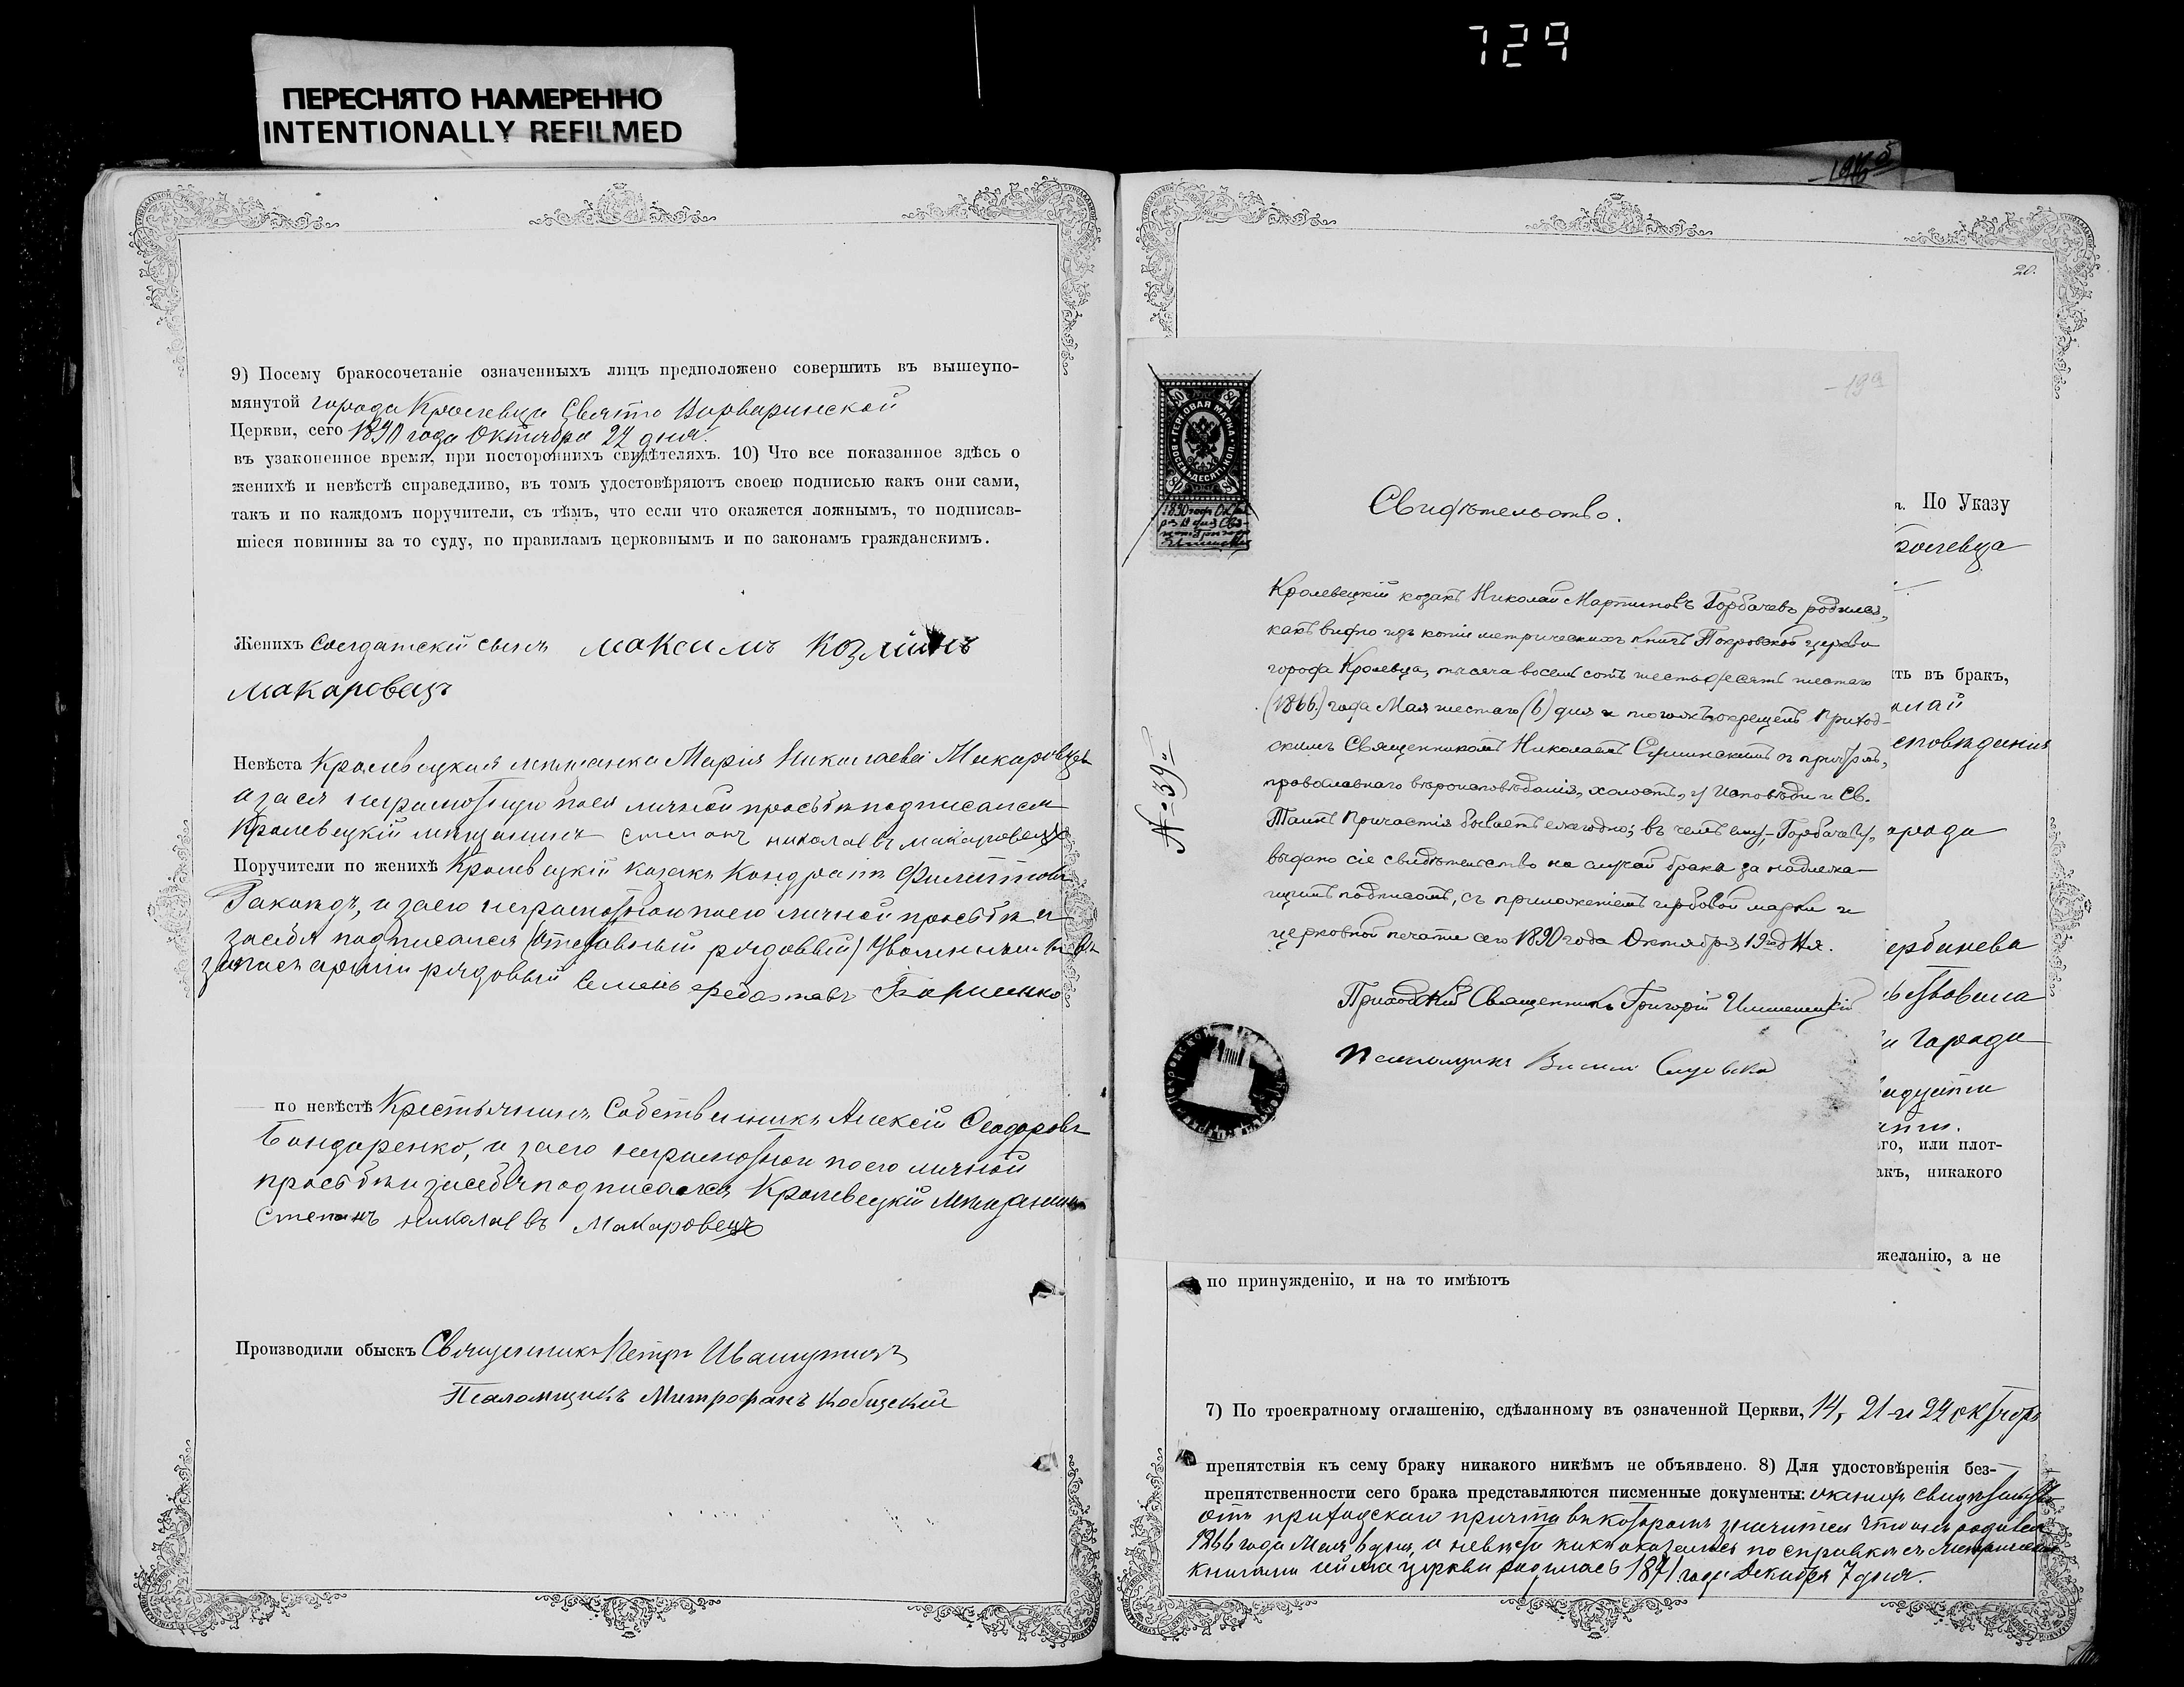 729
ПЕРЕСНЯТО НАМЕРЕННО
INTENTIONALLY REFILMED
9) Посему бракосочетаніе означенныхъ лицъ предположено совершить въ вышеупо-
мянутой города Кролевца Свято Варваринской
Церкви, сего 1890 года Октября 24 дня.
въ узаконенное время, при постороннихъ свидѣтеляхъ. 10) Что все показанное здѣсь о
женихѣ и невѣстѣ справедливо, въ томъ удостовѣряютъ своею подписью какъ они сами,
такъ и по каждомъ поручители, съ тѣмъ, что если что окажется ложнымъ, то подписав-
шіеся повинны за то суду, по правиламъ церковнымъ и по законамъ гражданскимъ.
Женихъ Солдатскій сынъ максимъ
макаровецъ
Невѣста Кролевецкая мѣщанка Марія Николаева Макаровецъ
а за ея неграмотную по ея личной просьбѣ подписался
Кролевецкій мѣщанинъ степанъ николаевъ макаровецъ
Поручители по женихѣ Кролевецкій казакъ Кондратъ Филипповъ
и за его неграмотного по его личной просьбѣ и
за себя подписался (отставный рядовый) уволенный въ
запасъ арміи рядовый Семенъ
по невѣстѣ Крестьянинъ Собственникъ Алексій Феодоровъ
Бондаренко, и за его неграмотного по его личной
просьбѣ и за себя подписался Кролевецкій Мѣщанинъ
степанъ николаевъ Макаровецъ
Производили обыскъ Священникъ Петръ
Псаломщикъ Митрофанъ Кобицскій
20.
ГЕРБОВАЯ МАРКА
80
ВОСЕМЬДЕСЯТЪ КОП
№ 39
Свидѣтельство.
Кролевецкій козакъ Николай Мартиновъ Горбачевъ родился,
какъ видно изъ копіи метрическихъ книгъ Покровской церкви
города Кролевца, тысяча восемь сотъ шестьдесятъ шестаго
(1866.) года Мая шестаго (6) дня и тогожъ окрещенъ Приход-
скимъ Священникомъ Николаемъ съ причтомъ,
православнаго вѣроисповѣданія, холостъ, у Исповѣди и Св.
Таинъ Причастія бываетъ ежегодно; въ чемъ ему, Горбачеву,
выдано сіе свидѣтельство на случай брака за надлежа-
щимъ подписомъ, съ приложеніемъ гербовой марки и
церковной печати сего 1890 года Октября 19 дня.
Приходскій Священникъ Григорій
Псаломщикъ
По Указу
ть въ брак,
олай
города
города
го, или плот-
акъ, никакого
желанію, а не
по принужденію, и на то имѣютъ
7) По троекратному оглашенію, сдѣланному въ означенной Церкви, 14, 21 и 22 октября
препятствія къ сему браку никакого никѣмъ не объявлено. 8) Для удостовѣренія без-
препятственности сего брака представляются писменные документы:
отъ приходскаго причта въ которомъ значится что онъ родился
1866 года Мая 6 дня, а невѣста какъ оказалось по справкѣ съ метрическими
книгами сей же церкви родилась 1871 года Декабря 7 дня.